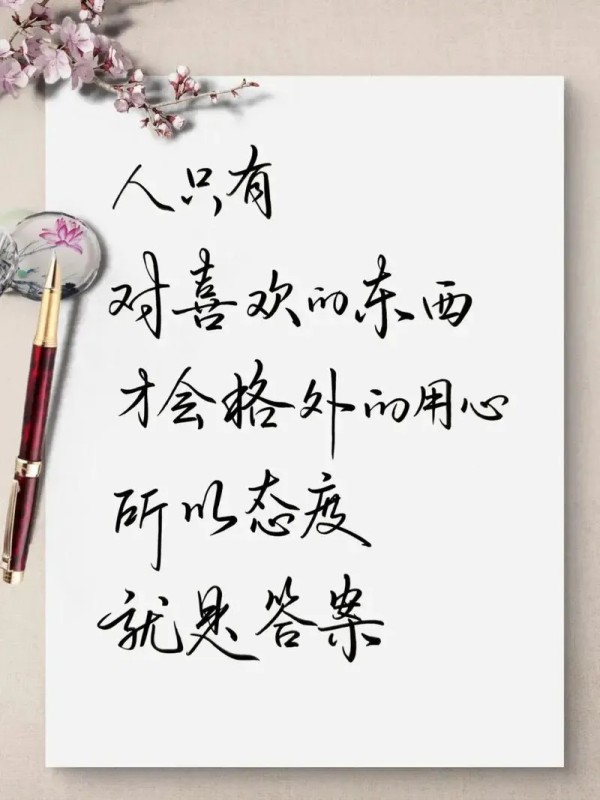 人只有
对喜欢的东西
才会格外的用心
所以态度
就是答案